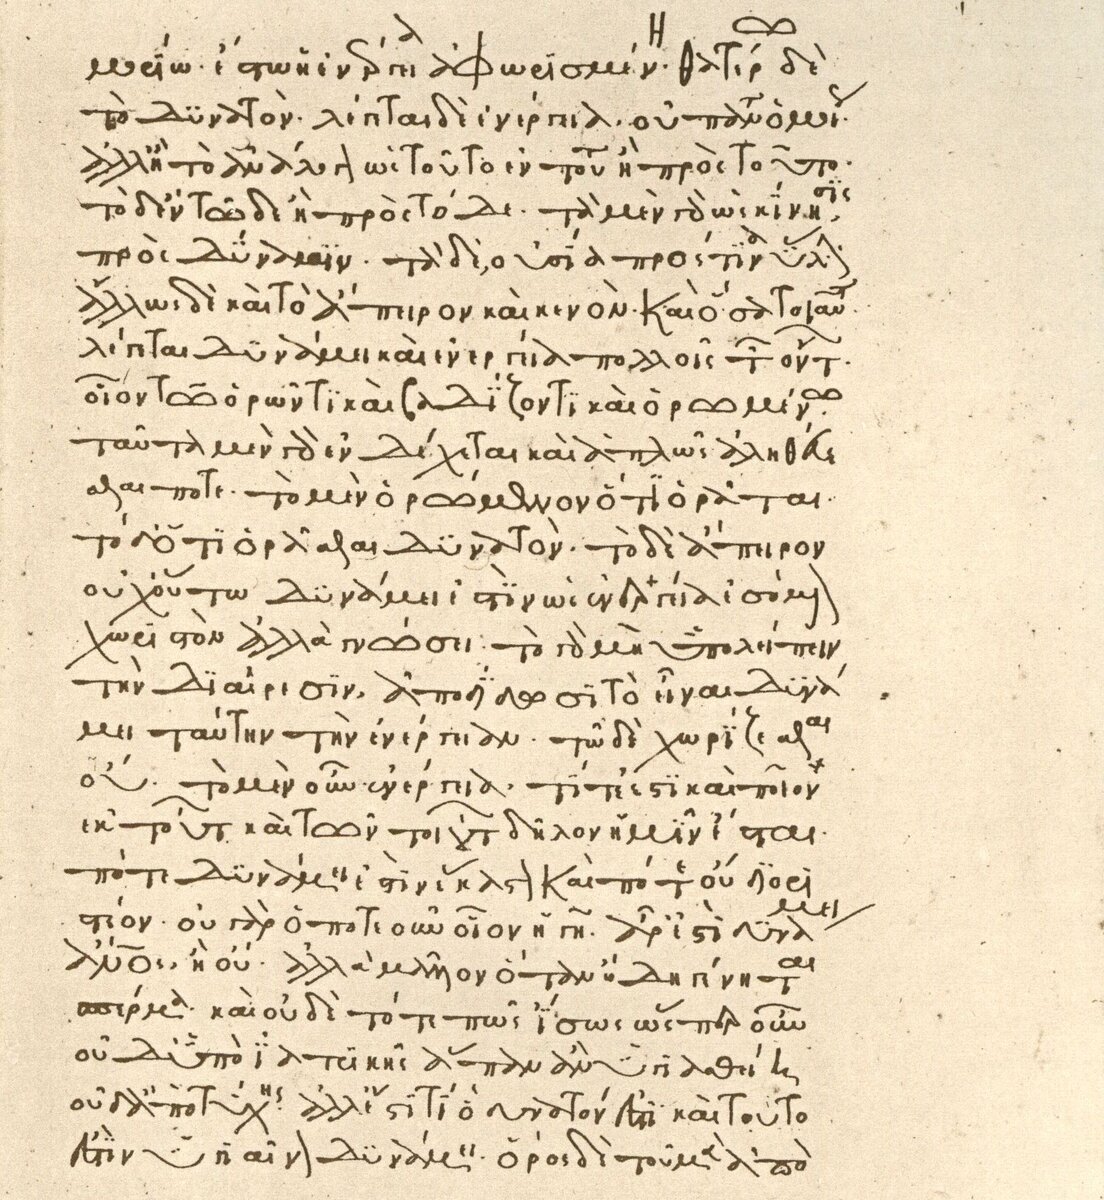 μορίω· ἔστω ἡ ἐνέργεια ἀφωρισμένη· θατέρω δὲ
τὸ δυνατόν· λέγεται δὲ ἐνέργεια· οὐ πάντα ὁμοίως·
ἀλλ' ἢ τὸ ἀνάλογον ὡς τοῦτο ἐν τούτω ἢ πρὸς τοῦτο·
τὸ δ' ἐν τῶδε ἢ πρὸς τόδε· τὰ μὲν γὰρ ὡς κίνησις
πρὸς δύναμιν· τὰ δ', οὐσία πρός τινα ὕλην
ἄλλως δὲ καὶ τὸ ἄπειρον καὶ κενόν· καὶ ὅσα τοιαῦτα·
λέγεται δυνάμει καὶ ἐνεργεία πολλοῖς τῶν ὄντων·
οἷον τῶ ὁρῶντι καὶ βαδίζοντι καὶ ὁρωμένω·
ταῦτα μὲν γὰρ ἐνδέχεται καὶ ἁπλῶς ἀληθεύε
σθαι ποτε· τὸ μὲν ὁρώμενον ὅτι ὁρᾶται·
τὸ δ' ὅτι ὁρᾶσθαι δυνατόν· τὸ δὲ ἄπειρον
οὐχ οὕτω δυνάμει ἔστιν ὡς ἐνεργεία ἐσόμενον
χωριστὸν ἀλλὰ γνώσει· τὸ γὰρ μὴ ὑπολείπειν
τὴν διαίρεσιν, ἀποδίδωσι τὸ εἶναι δυνά
μει ταύτην τὴν ἐνέργειαν· τῶ δὲ χωρίζεσθαι
οὔ· τὸ μὲν οὖν ἐνεργεία, τί τέ ἐστι καὶ ποῖον
ἐκ τούτων καὶ τῶν τοιούτων δῆλον ἡμῖν ἔσται·
πότε δυνάμει ἐστὶν ἕκαστον καὶ πότε οὐ διορι
στέον· οὐ γὰρ ὁποτεοῦν οἷον ἡ γῆ· ἆρ' ἐστὶ δυνάμει
ἄνθρωπος, ἢ οὔ· ἀλλὰ μᾶλλον ὅταν ἤδη γένηται
σπέρμα· καὶ οὐδὲ τότε πως ἴσως ὥσπερ οὖν
οὐδ' ὑπὸ ἰατρικῆς ἅπαν ἂν ὑγιασθείη
οὐδ' ἀπὸ τύχης· ἀλλ' ἔστι τι ὃ δυνατόν ἐστι καὶ τοῦτο
ἐστὶν ὑγιαῖνον δυνάμει· ὅρος δὲ τοῦ μὲν ἀπὸ